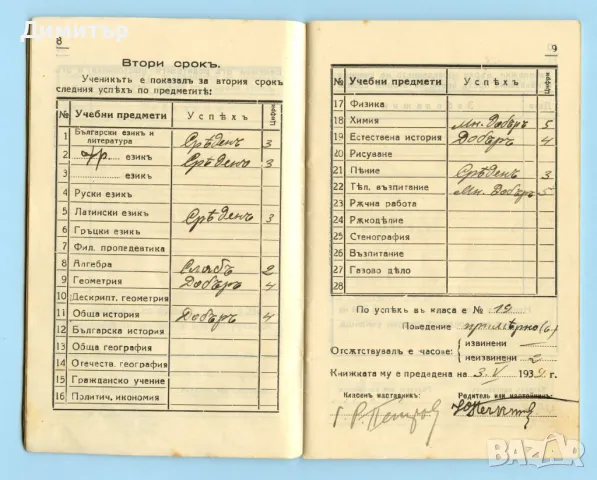 Dimitar
8
Втори срокъ.
Ученикътъ е показалъ за втория срокъ
следния успѣхъ по предметитѣ:
№ Учебни предмети Успѣхъ Цифри
1 Български езикъ и литература Срѣденъ 3
2 Фр. езикъ Срѣденъ 3
3 езикъ
4 Руски езикъ
5 Латински езикъ Срѣденъ 3
6 Гръцки езикъ
7 Фил. пропедевтика
8 Алгебра Слабъ 2
9 Геометрия Добъръ 4
10 Дескрипт. геометрия
11 Обща история Добъръ 4
12 Българска история
13 Обща география
14 Отечеств. география
15 Гражданско учение
16 Политич. икономия
9
№ Учебни предмети Успѣхъ Цифри
17 Физика
18 Химия Мн. Добъръ 5
19 Естествена история Добъръ 4
20 Рисуване
21 Пѣние Срѣденъ 3
22 Тѣл. възпитание Мн. Добъръ 5
23 Рѫчна работа
24 Рѫкодѣлие
25 Стенография
26 Възпитание
27 Газово дѣло
28
По успѣхъ въ класа е № 19
Поведение примѣрно (6.)
Отсѫтствувалъ е часове: извинени
неизвинени 2
Книжката му е предадена на 3. V 1934 г.
Класенъ наставникъ: Родитель или настойникъ:
BAZAR
bg